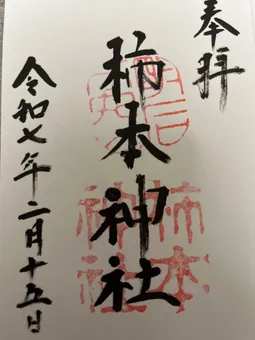 奉拝
柿本神社
令和七年二月十五日
柿本
神社